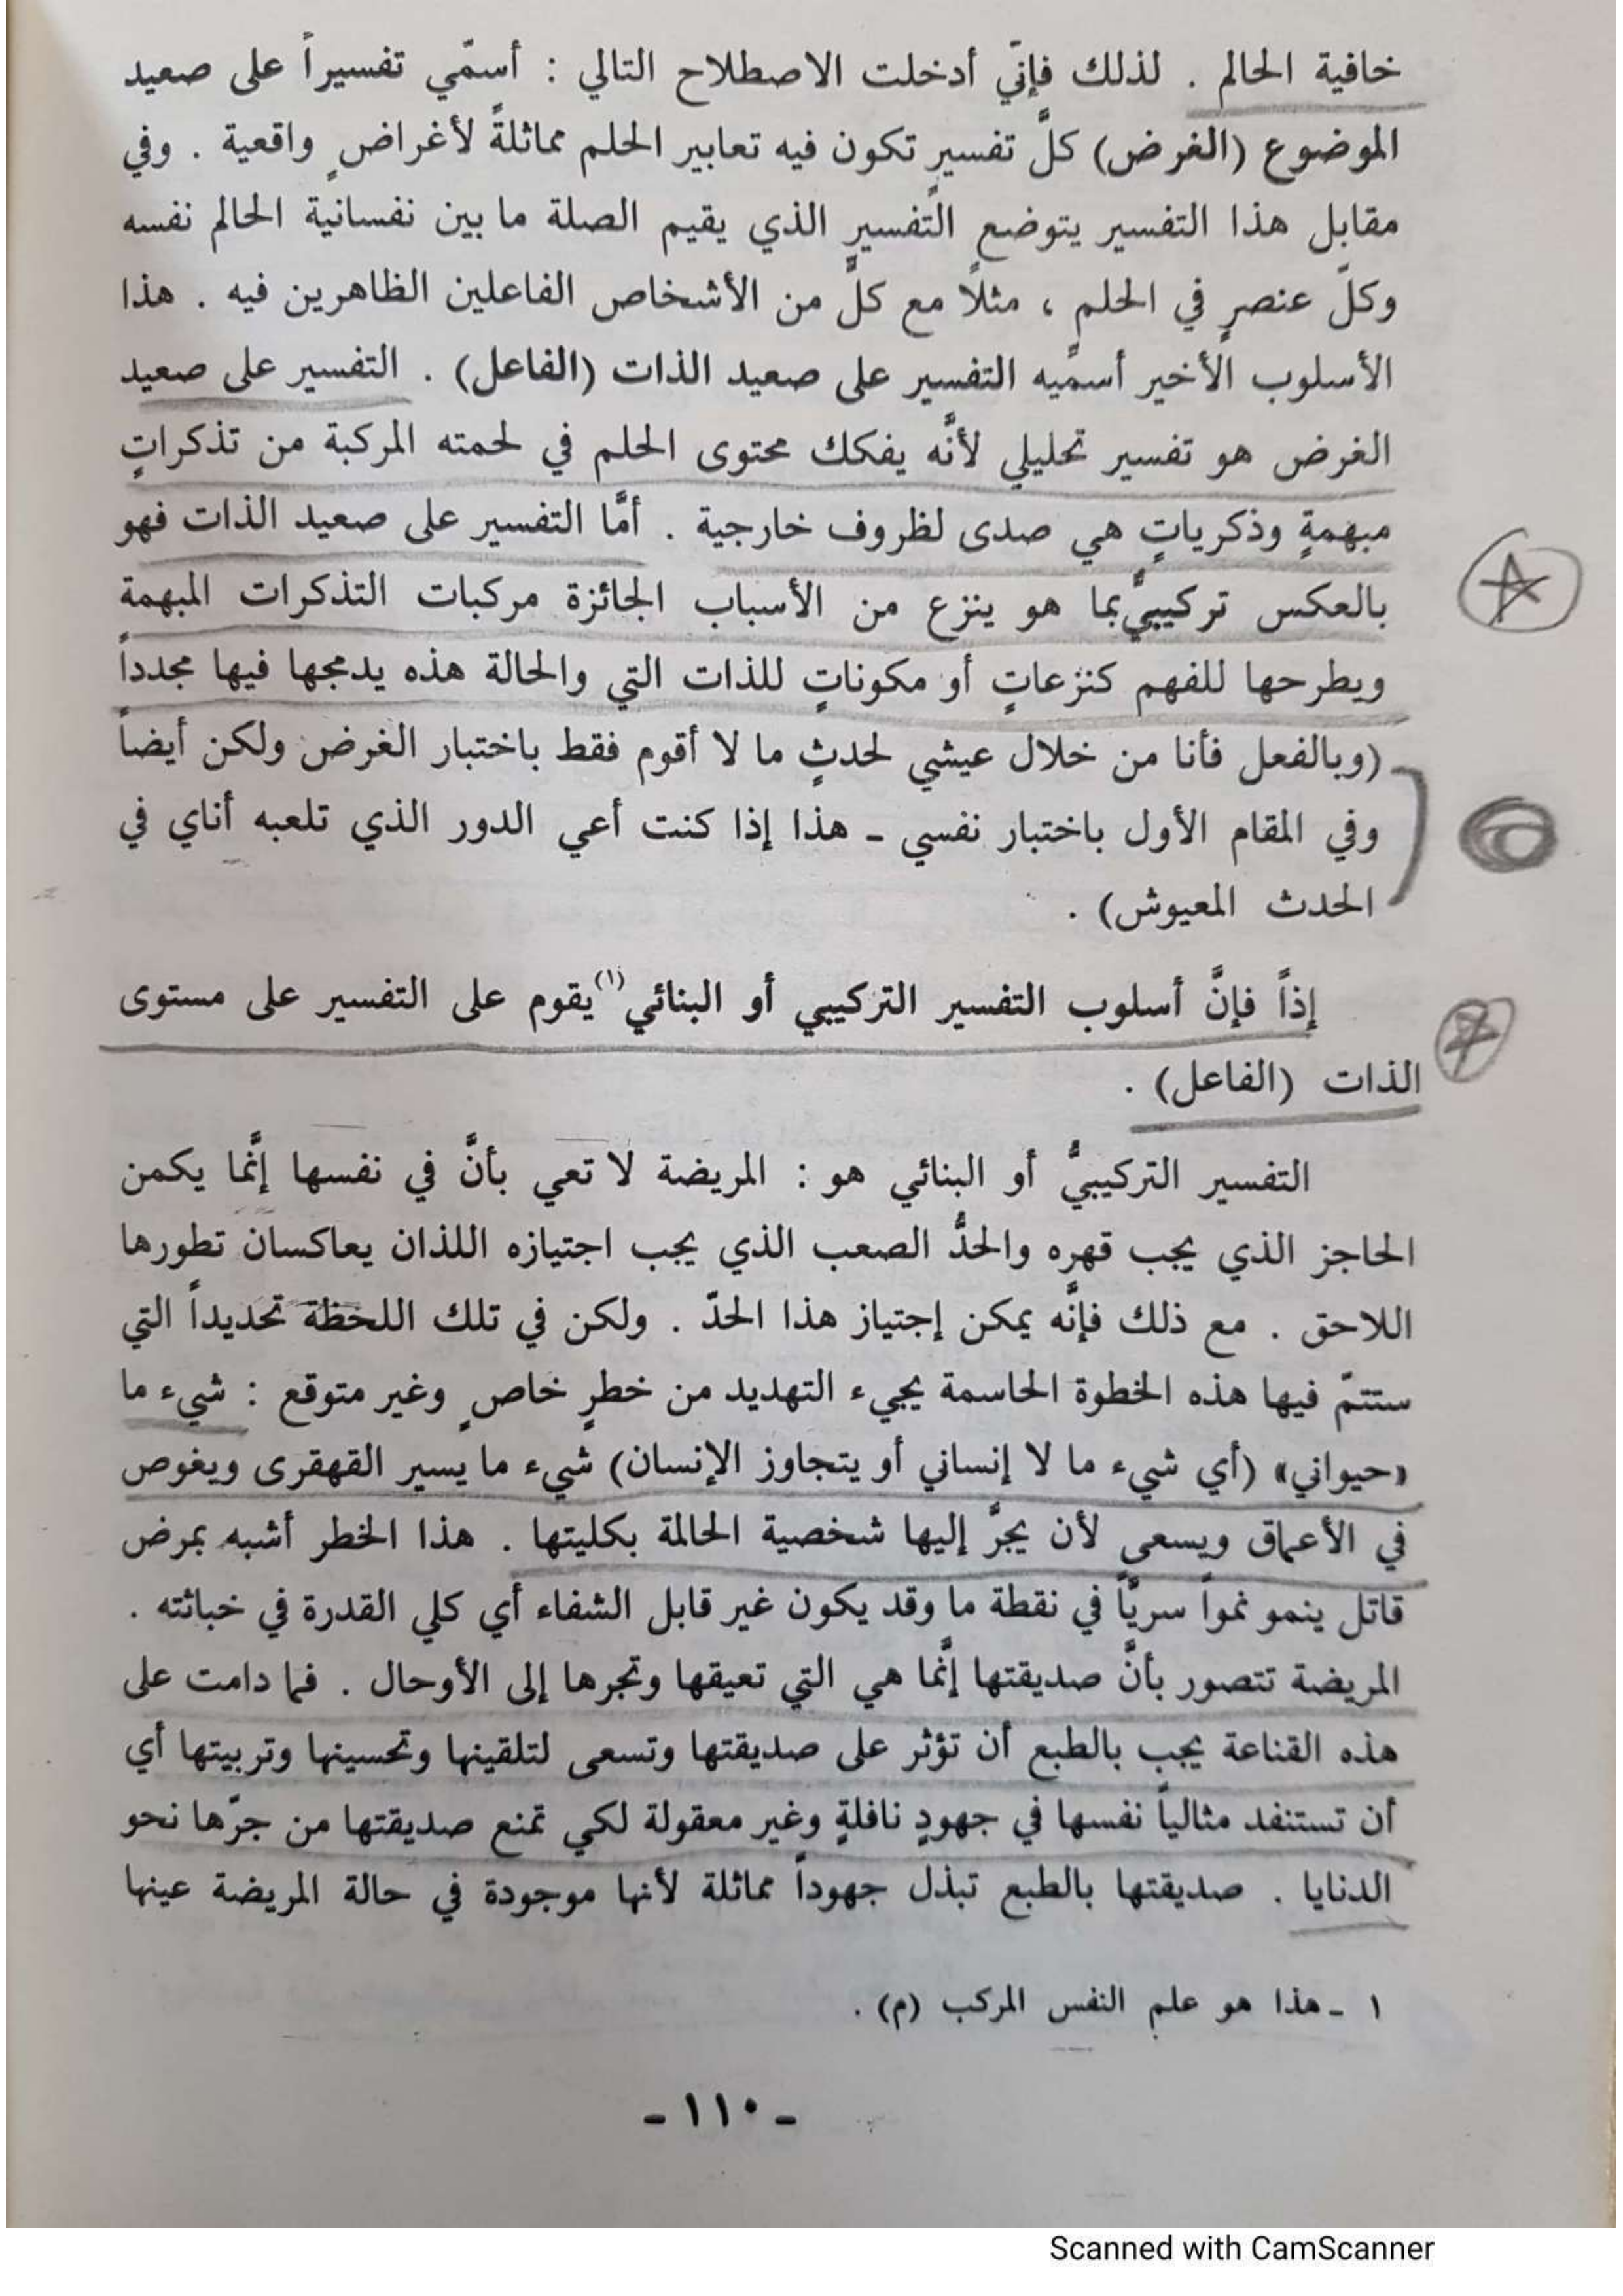 خافية الحالم . لذلك فإنّي أدخلت الاصطلاح التالي : أسمّي تفسيراً على صعيد
الموضوع (الغرض) كلَّ تفسيرٍ تكون فيه تعابير الحلم مماثلةً لأغراضٍ واقعية . وفي
مقابل هذا التفسير يتوضع التفسير الذي يقيم الصلة ما بين نفسانية الحالم نفسه
وكلّ عنصرٍ في الحلم ، مثلاً مع كلٍّ من الأشخاص الفاعلين الظاهرين فيه . هذا
الأسلوب الأخير أسمّيه التفسير على صعيد الذات (الفاعل) . التفسير على صعيد
الغرض هو تفسير تحليلي لأنَّه يفكك محتوى الحلم في لحمته المركبة من تذكراتٍ
مبهمةٍ وذكرياتٍ هي صدى لظروف خارجية . أمَّا التفسير على صعيد الذات فهو
بالعكس تركيبيٌّ بما هو ينزع من الأسباب الجائزة مركبات التذكرات المبهمة
ويطرحها للفهم كنزعاتٍ أو مكوناتٍ للذات التي والحالة هذه يدمجها فيها مجدداً
(وبالفعل فأنا من خلال عيشي لحدثٍ ما لا أقوم فقط باختبار الغرض ولكن أيضاً
وفي المقام الأول باختبار نفسي ـ هذا إذا كنت أعي الدور الذي تلعبه أناي في
الحدث المعيوش) .
إذاً فإنَّ أسلوب التفسير التركيبي أو البنائي(١) يقوم على التفسير على مستوى
الذات (الفاعل) .
التفسير التركيبيُّ أو البنائي هو : المريضة لا تعي بأنَّ في نفسها إنَّما يكمن
الحاجز الذي يجب قهره والحدُّ الصعب الذي يجب اجتيازه اللذان يعاكسان تطورها
اللاحق . مع ذلك فإنَّه يمكن إجتياز هذا الحدّ . ولكن في تلك اللحظة تحديداً التي
ستتمّ فيها هذه الخطوة الحاسمة يجيء التهديد من خطرٍ خاصٍ وغير متوقع : شيء ما
«حيواني» (أي شيء ما لا إنساني أو يتجاوز الإنسان) شيء ما يسير القهقرى ويغوص
في الأعماق ويسعى لأن يجرَّ إليها شخصية الحالمة بكليتها . هذا الخطر أشبه بمرض
قاتل ينمو نمواً سريّاً في نقطة ما وقد يكون غير قابل الشفاء أي كلي القدرة في خباثته .
المريضة تتصور بأنَّ صديقتها إنَّما هي التي تعيقها وتجرها إلى الأوحال . فما دامت على
هذه القناعة يجب بالطبع أن تؤثر على صديقتها وتسعى لتلقينها وتحسينها وتربيتها أي
أن تستنفد مثالياً نفسها في جهودٍ نافلةٍ وغير معقولة لكي تمنع صديقتها من جرّها نحو
الدنايا . صديقتها بالطبع تبذل جهوداً مماثلة لأنها موجودة في حالة المريضة عينها
١ ـ هذا هو علم النفس المركب (م) .
ـ ١١٠ ـ
Scanned with CamScanner